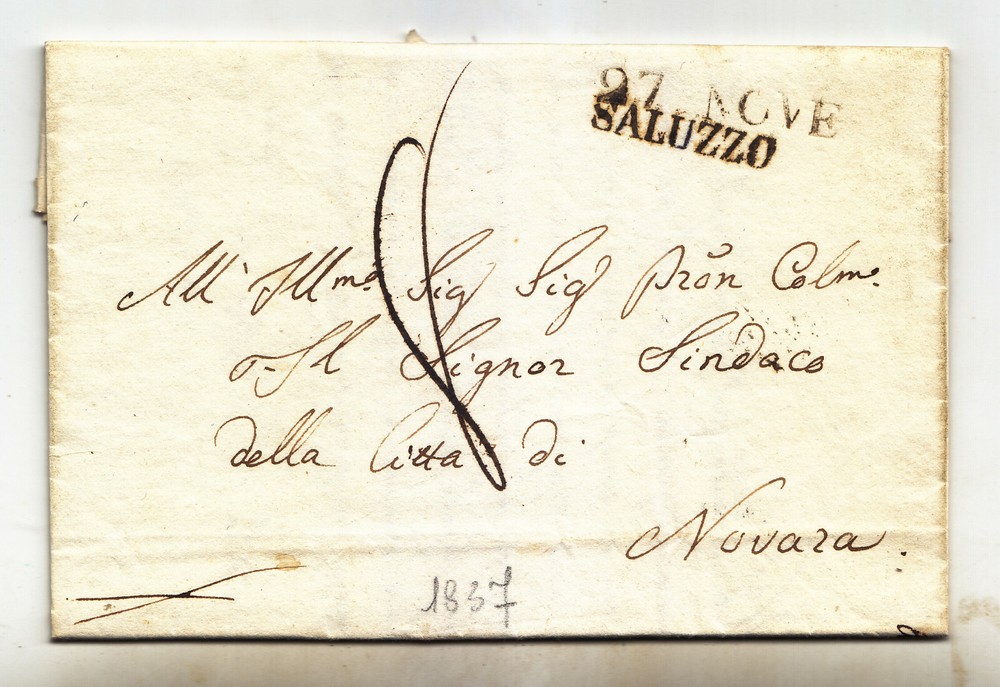 27 NOVE
SALUZZO
All' Illmo Sig Sig Prõn Colmo
Il Signor Sindaco
della Citta di
Novara.
1837